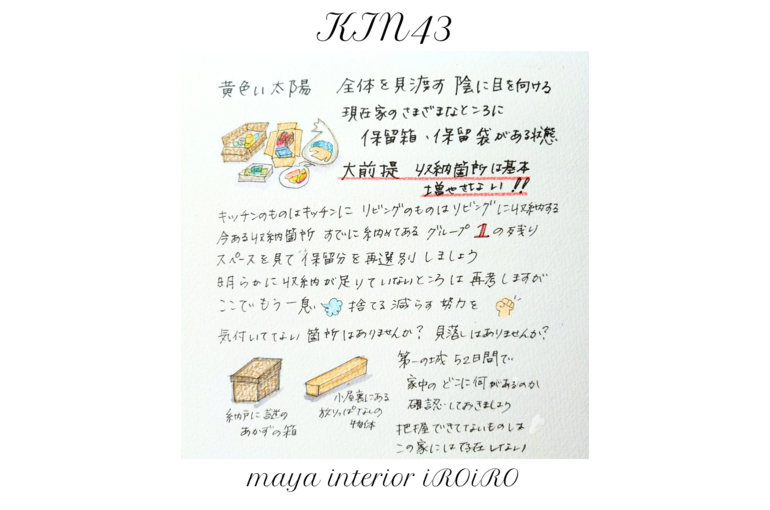 KIN43
黄色い太陽　全体を見渡す 陰に目を向ける
現在家のさまざまなところに
保留箱、保留袋がある状態
大前提 収納箇所は基本
増やせない!!
キッチンのものはキッチンに リビングのものはリビングに収納する
今ある収納箇所 すでに納めてある グループ1の残り
スペースを見て保留分を再選別しましょう
明らかに収納が足りていないところは再考しますが
ここでもう一息 捨てる 減らす 努力を
気付いてない箇所はありませんか? 見落しはありませんか?
納戸に謎の
あかずの箱
小屋裏にある
放りっぱなしの
物体
第一の城 52日間で
家中のどこに何があるのか
確認しておきましょう
把握できてないものは
この家には存在しない
maya interior iROiRO